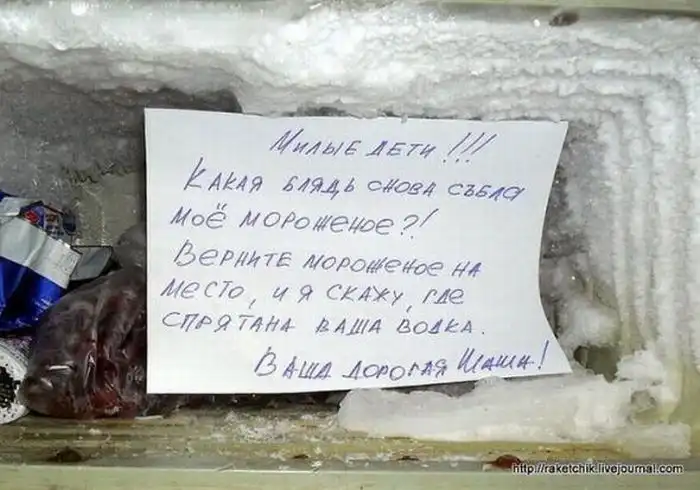 Милые дети!!!
Какая блядь снова съела
моё мороженое?!
Верните мороженое на
место, и я скажу, где
спрятана ваша водка.
Ваша дорогая Маша!
http://raketchik.livejournal.com/